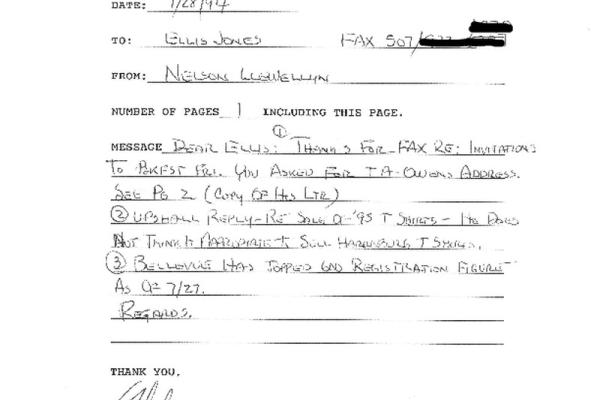 DATE: 7/28/94
TO: ELLIS JONES FAX 507/
FROM: NELSON LLEWELLYN
NUMBER OF PAGES 1 INCLUDING THIS PAGE.
MESSAGE DEAR ELLIS: ① THANKS FOR FAX RE: INVITATIONS
TO PKFST FRI. YOU ASKED FOR T.A. OWENS ADDRESS.
SEE PG 2 (COPY OF HIS LTR)
② UPSHALL REPLY-RE SALE OF '95 T SHIRTS - HE DOES
NOT THINK IT APPROPRIATE TO SELL HARRISBURG T SHIRTS.
③ BELLEVUE HAS TOPPED 600 REGISTRATION FIGURE
AS OF 7/27.
REGARDS.
THANK YOU,